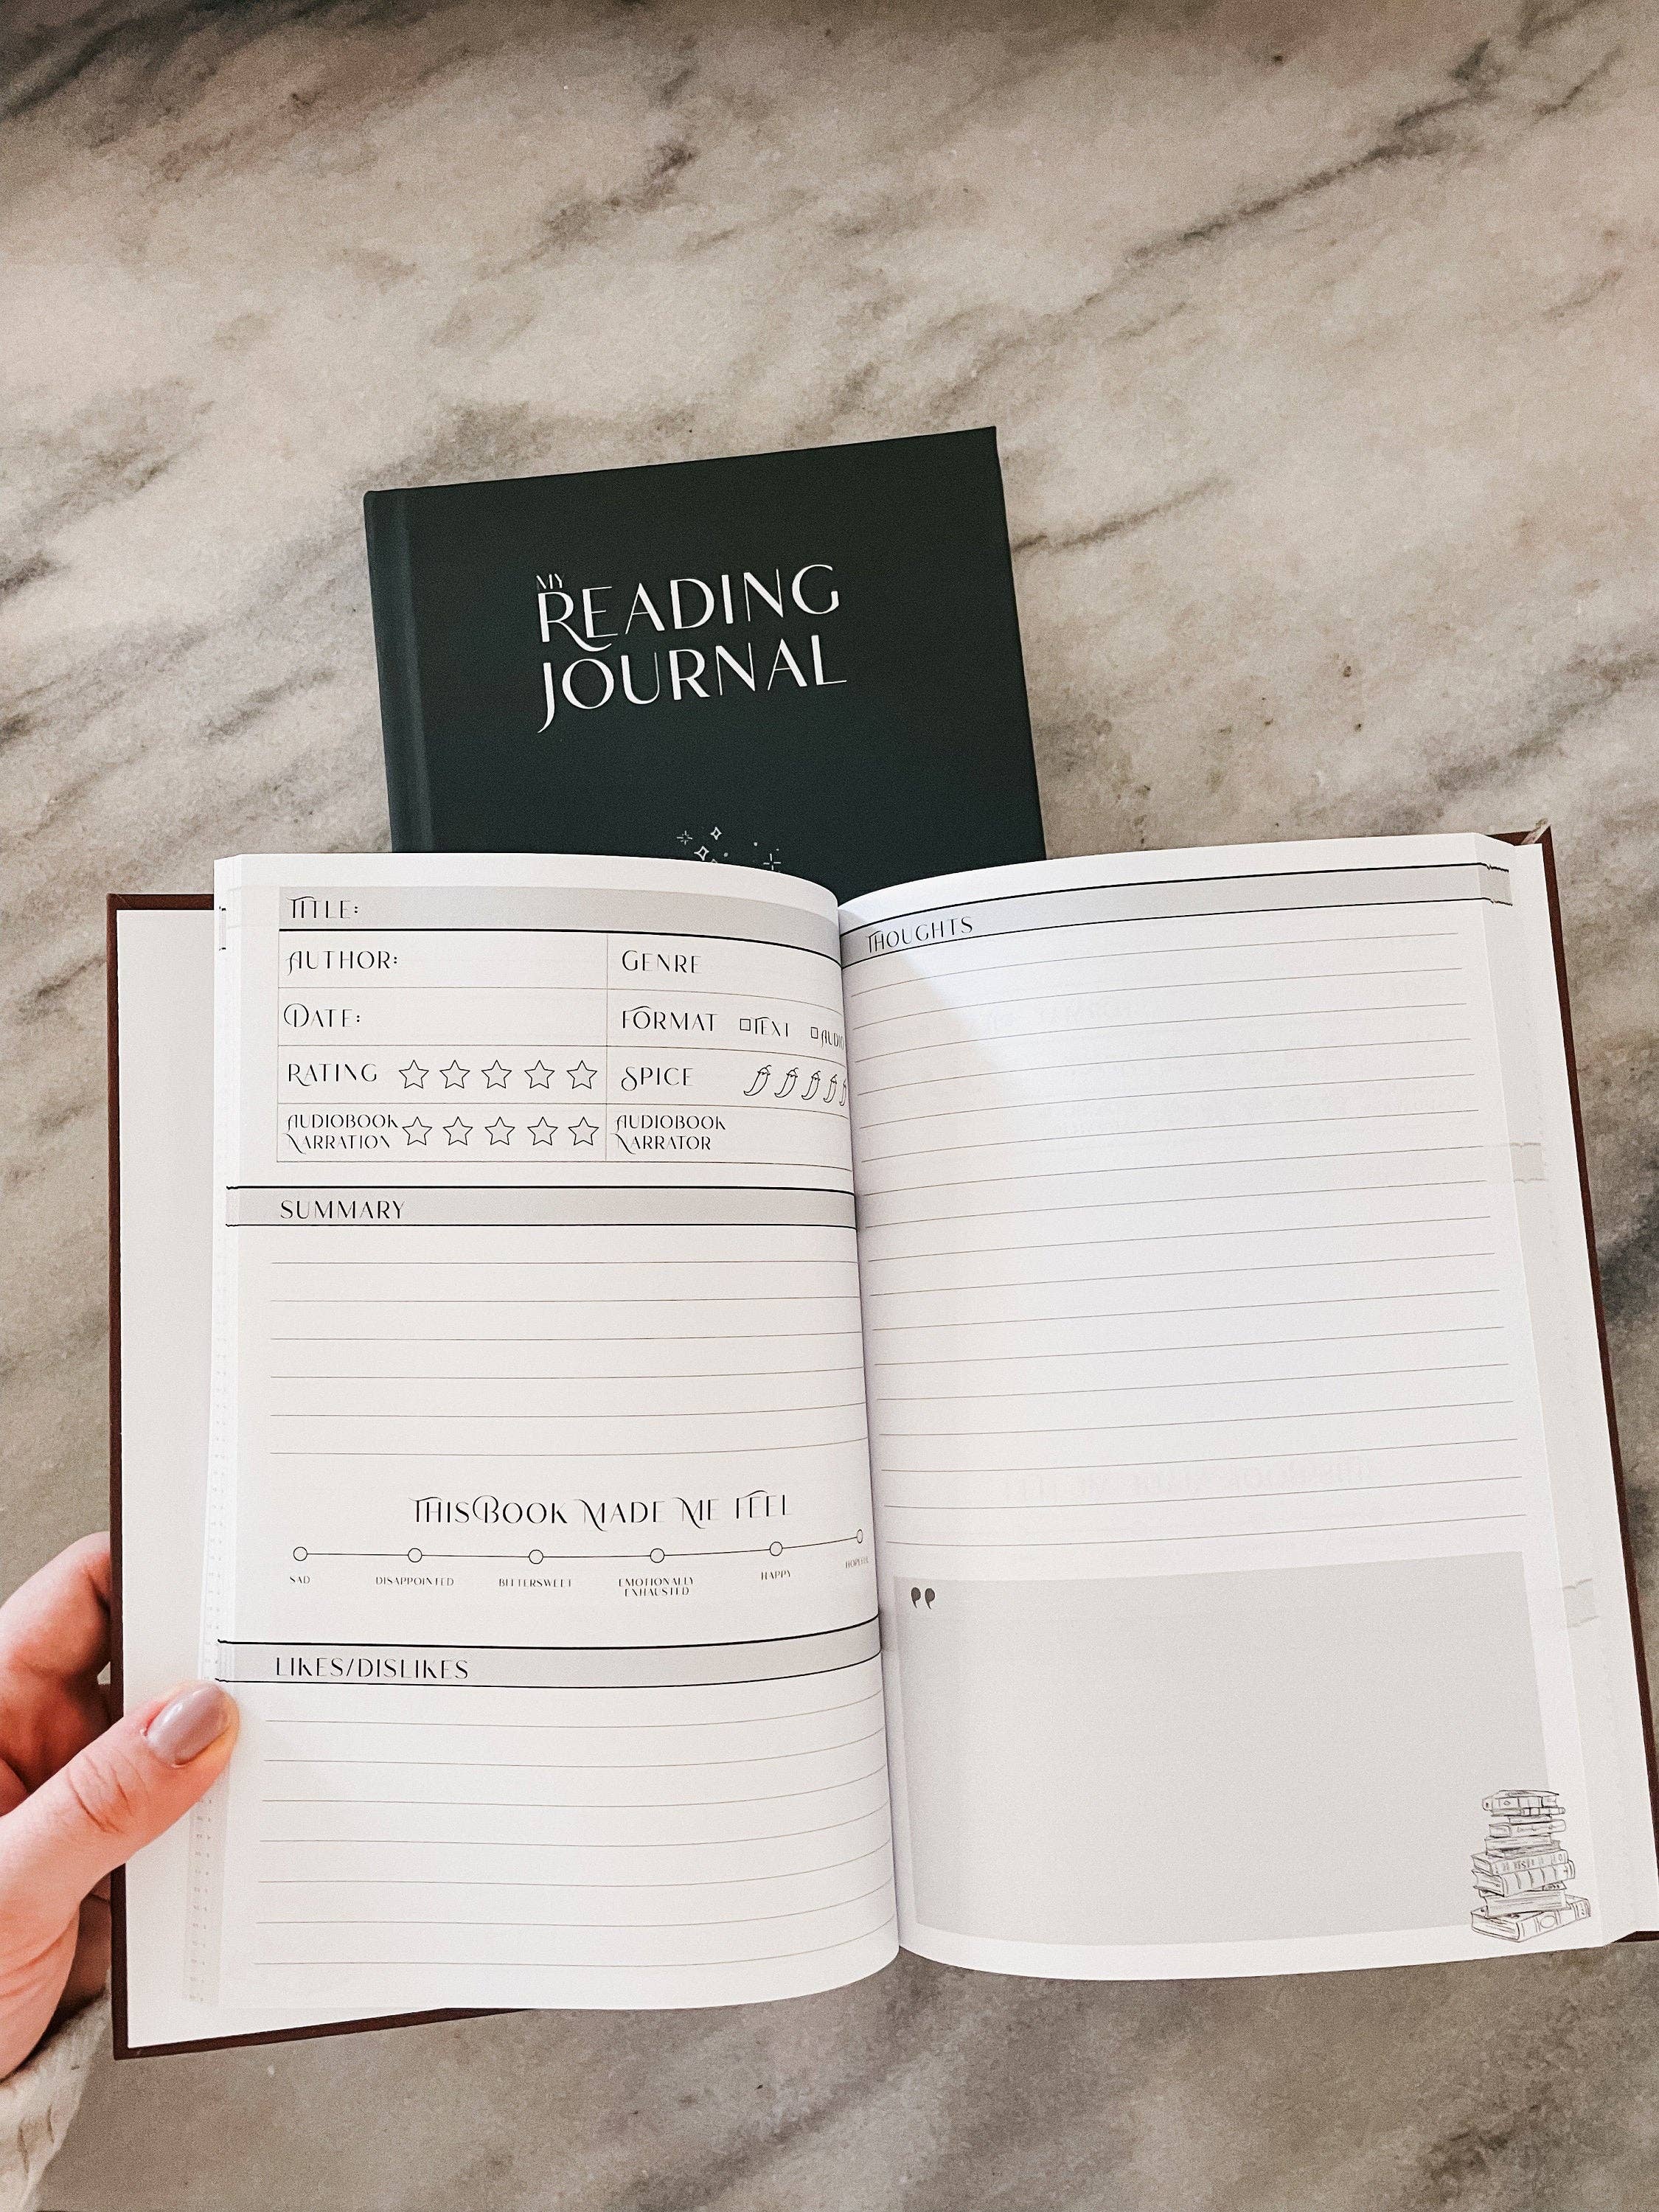 MY
READING
JOURNAL
TITLE:
AUTHOR:
GENRE
DATE:
FORMAT □TEXT □AUDIO
RATING
SPICE
AUDIOBOOK
NARRATION
AUDIOBOOK
NARRATOR
SUMMARY
THIS BOOK MADE ME FEEL
SAD
DISAPPOINTED
BITTERSWEET
EMOTIONALLY
EXHAUSTED
HAPPY
LIKES/DISLIKES
THOUGHTS